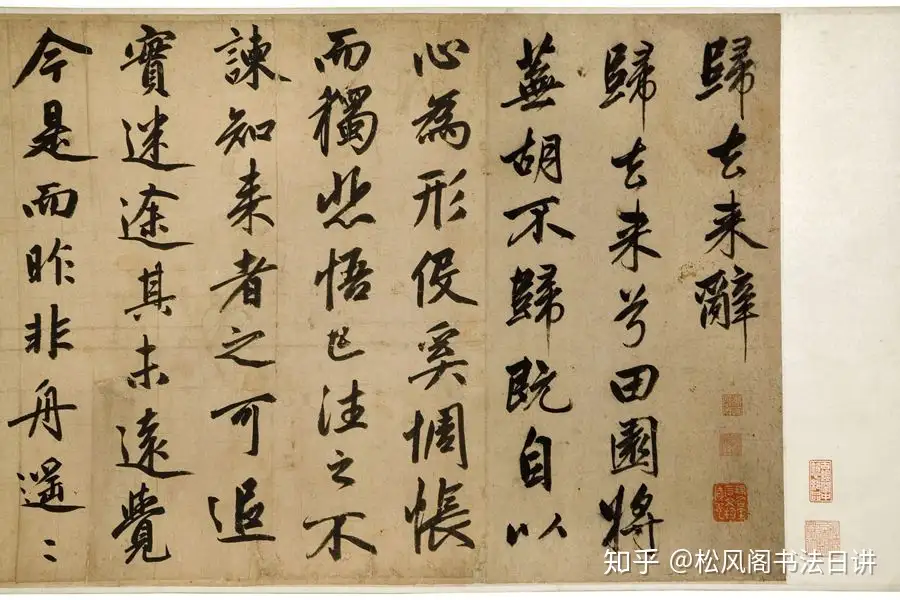 歸去来辭
歸去来兮田園將
蕪胡不歸既自以
心為形役奚惆悵
而獨悲悟已往之不
諫知来者之可追
實迷途其未遠覺
今是而昨非舟遥〻
知乎 @松风阁书法日讲